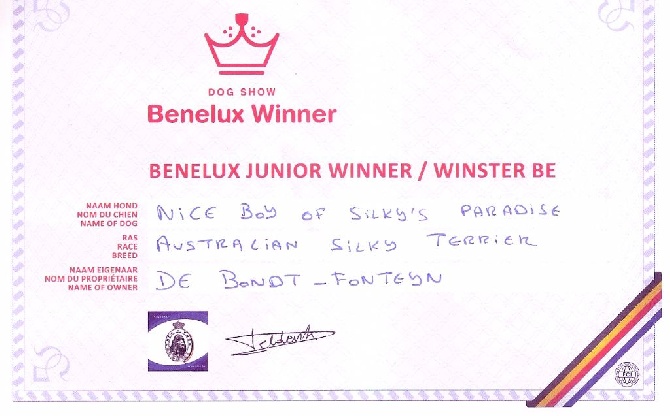 DOG SHOW
Benelux Winner
BENELUX JUNIOR WINNER / WINSTER BE
NAAM HOND
NOM DU CHIEN
NAME OF DOG
NiCE BOY OF SiLKY'S PARADISE
RAS
RACE
BREED
AUSTRALIAN SILKY TERRIER
NAAM EIGENAAR
NOM DU PROPRIÉTAIRE
NAME OF OWNER
DE BONDT - FONTEYN